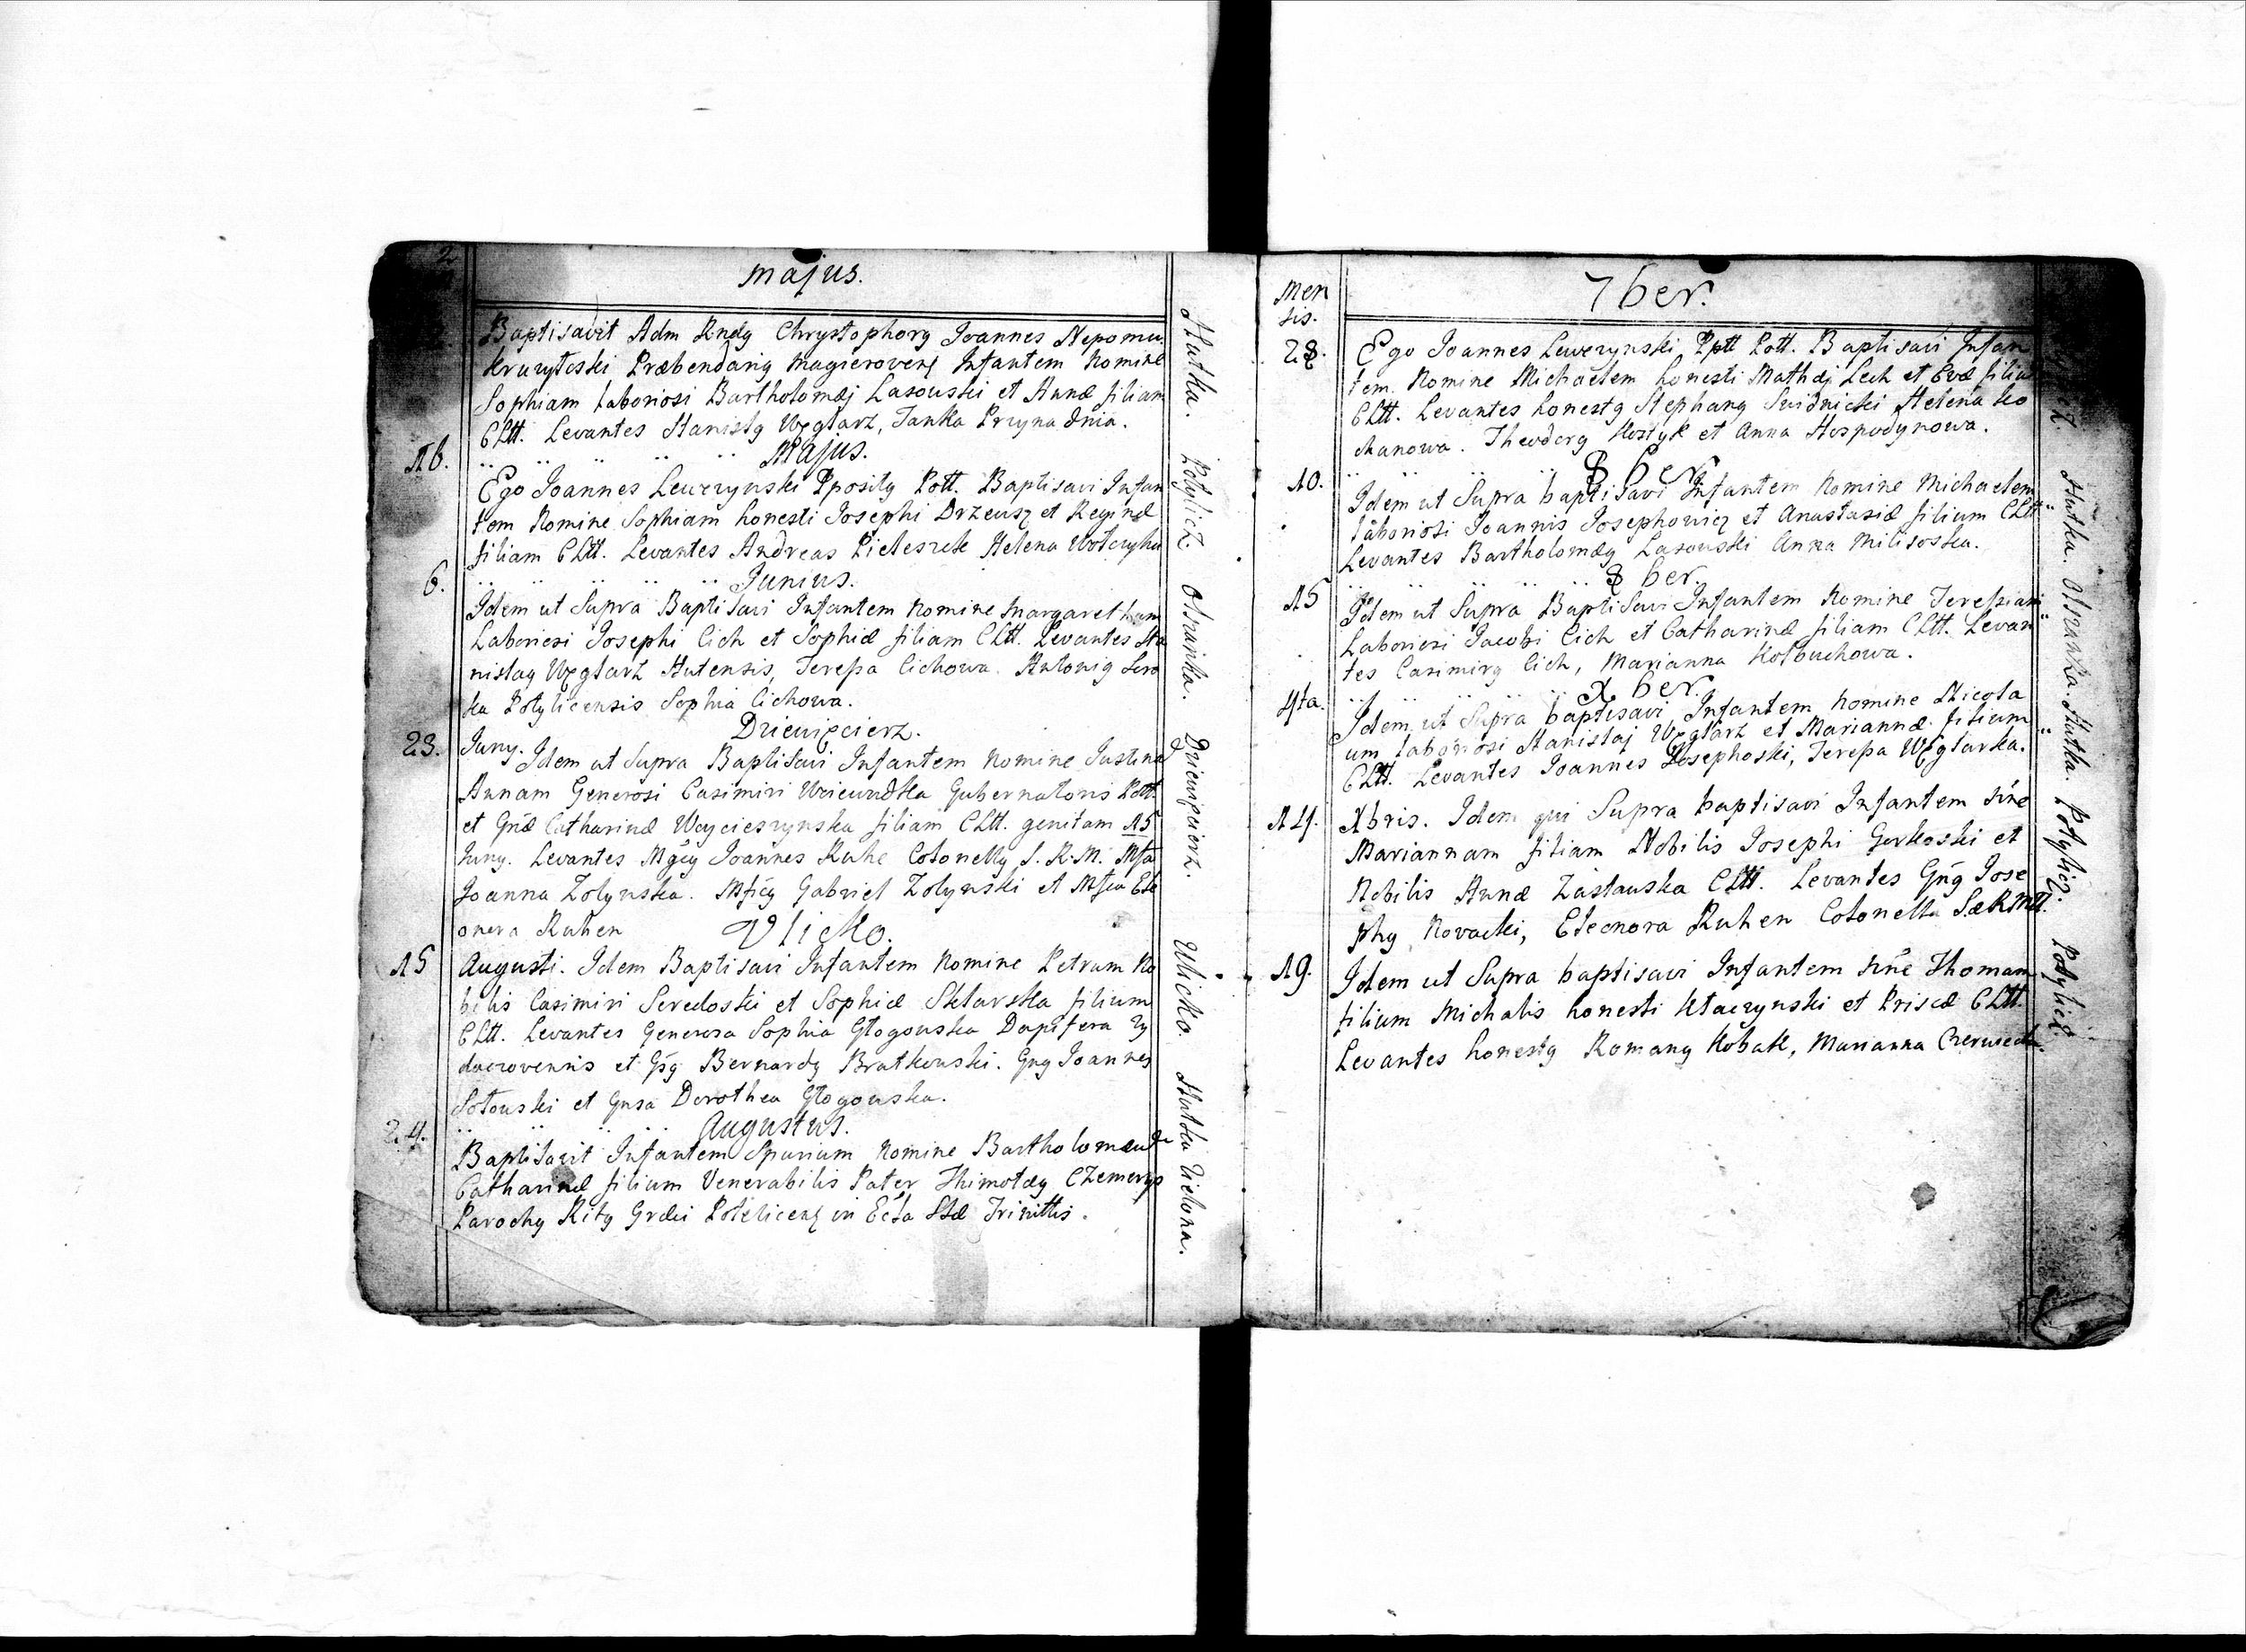 majus.
Baptisavit Adm Rndg Chrystophorg Joannes Nepomu
Præbendarig Magierovens Infantem Nomine
Sophiam Laboriosi Bartholomæj Lasouski et Annæ filiam
CLtt. Levantes Stanislg Węglarz, Janka
Hutka.
16.
Majus.
Ego Joannes Lewczynski Pposity Pott. Baptisavi Infan
tem Nomine Sophiam honesti Josephi Drzeusz et Reginæ
filiam CLtt. Levantes Andreas Pieleszek Helena
Potylicz.
6.
Junius.
Idem ut Supra Baptisavi Infantem Nomine Margaretham
Laboriosi Josephi Cich et Sophiæ filiam CLtt. Levantes Sta
nislag Węglarz Hutensis, Teressa Cichowa. Antonig Sero
ka Potylicensis Sophia Cichowa.
Olszanka.
Dziewięcierz.
23.
Juny. Idem ut Supra Baptisavi Infantem Nomine Justinā
Annam Generosi Casimiri Gubernatoris Pott.
et Gnæ Catharinæ Woycieszynska filiam CLtt. genitam 15
Juny. Levantes Mgcg Joannes Ruhe Colonellg S. R. M. Mfca
Joanna Zolynska. Mficg Gabriel Zolynski et Mfica Ele
onora Ruhen
Dziewięcierz.
Ulicko.
15
Augusti. Idem Baptisavi Infantem Nomine Petrum No
bilis Casimiri Seredoski et Sophiæ Sklarska filium
CLtt. Levantes Generosa Sophia Głogouska Dapifera Zy
daczovensis et Gsg Bernardg Bratkouski. Gng Joannes
Sołouski et Gnsa Dorothea Głogouska.
Ulicko.
24.
Augustus.
Baptisavit Infantem Spurium Nomine Bartholomæu
Catharinæ filium Venerabilis Pater Thimotæg Czemerys
Parochg Ritg Græci Poteliceng in Ecła Stæ Trinittis.
Hutka Zielona.
Men
sis.
7ber.
28.
Ego Joannes Lewczynski Pptt Pott. Baptisavi Infan
tem Nomine Michaelem honesti Mathæj Lech et Evæ filiu
CLtt. Levantes honestg Stephang Suidnicki Helena Ko
chanowa. Theodorg Kostyk et Anna Hospodynowa.
8ber
10.
Idem ut Supra baptisavi Infantem Nomine Michaelem
Laboriosi Joannis Josephowicz et Anastasiæ filium CLtt
Levantes Bartholomæg Lasouski Anna Milisoska.
Hutka.
8ber.
15
Idem ut Supra Baptisavi Infantem Nomine Teressiam
Laboriosi Jacobi Cich et Catharinæ filiam CLtt. Levan
tes Casimirg Cich, Marianna Kołbuchowa.
Olszanka.
Xber.
4ta.
Idem ut Supra baptisavi Infantem Nomine Nicola
um Laboriosi Stanislaj Węglarz et Mariannæ filium
CLtt. Levantes Joannes Josephoski, Teressa Węglarka.
Hutka.
14.
Xbris. Idem qui Supra baptisavi Infantem nne
Mariannam filiam Nobilis Josephi Gorkoski et
Nobilis Annæ Zasłauska CLtt. Levantes Gng Jose
phg Novacki, Eleonora Ruhen Colonella SæRMtt.
Potylicz.
19.
Idem ut Supra baptisavi Infantem nne Thomam
filium Michalis honesti Kłaczynski et Priscæ CLtt.
Levantes honestg Romang Kobak, Marianna
Potylicz.